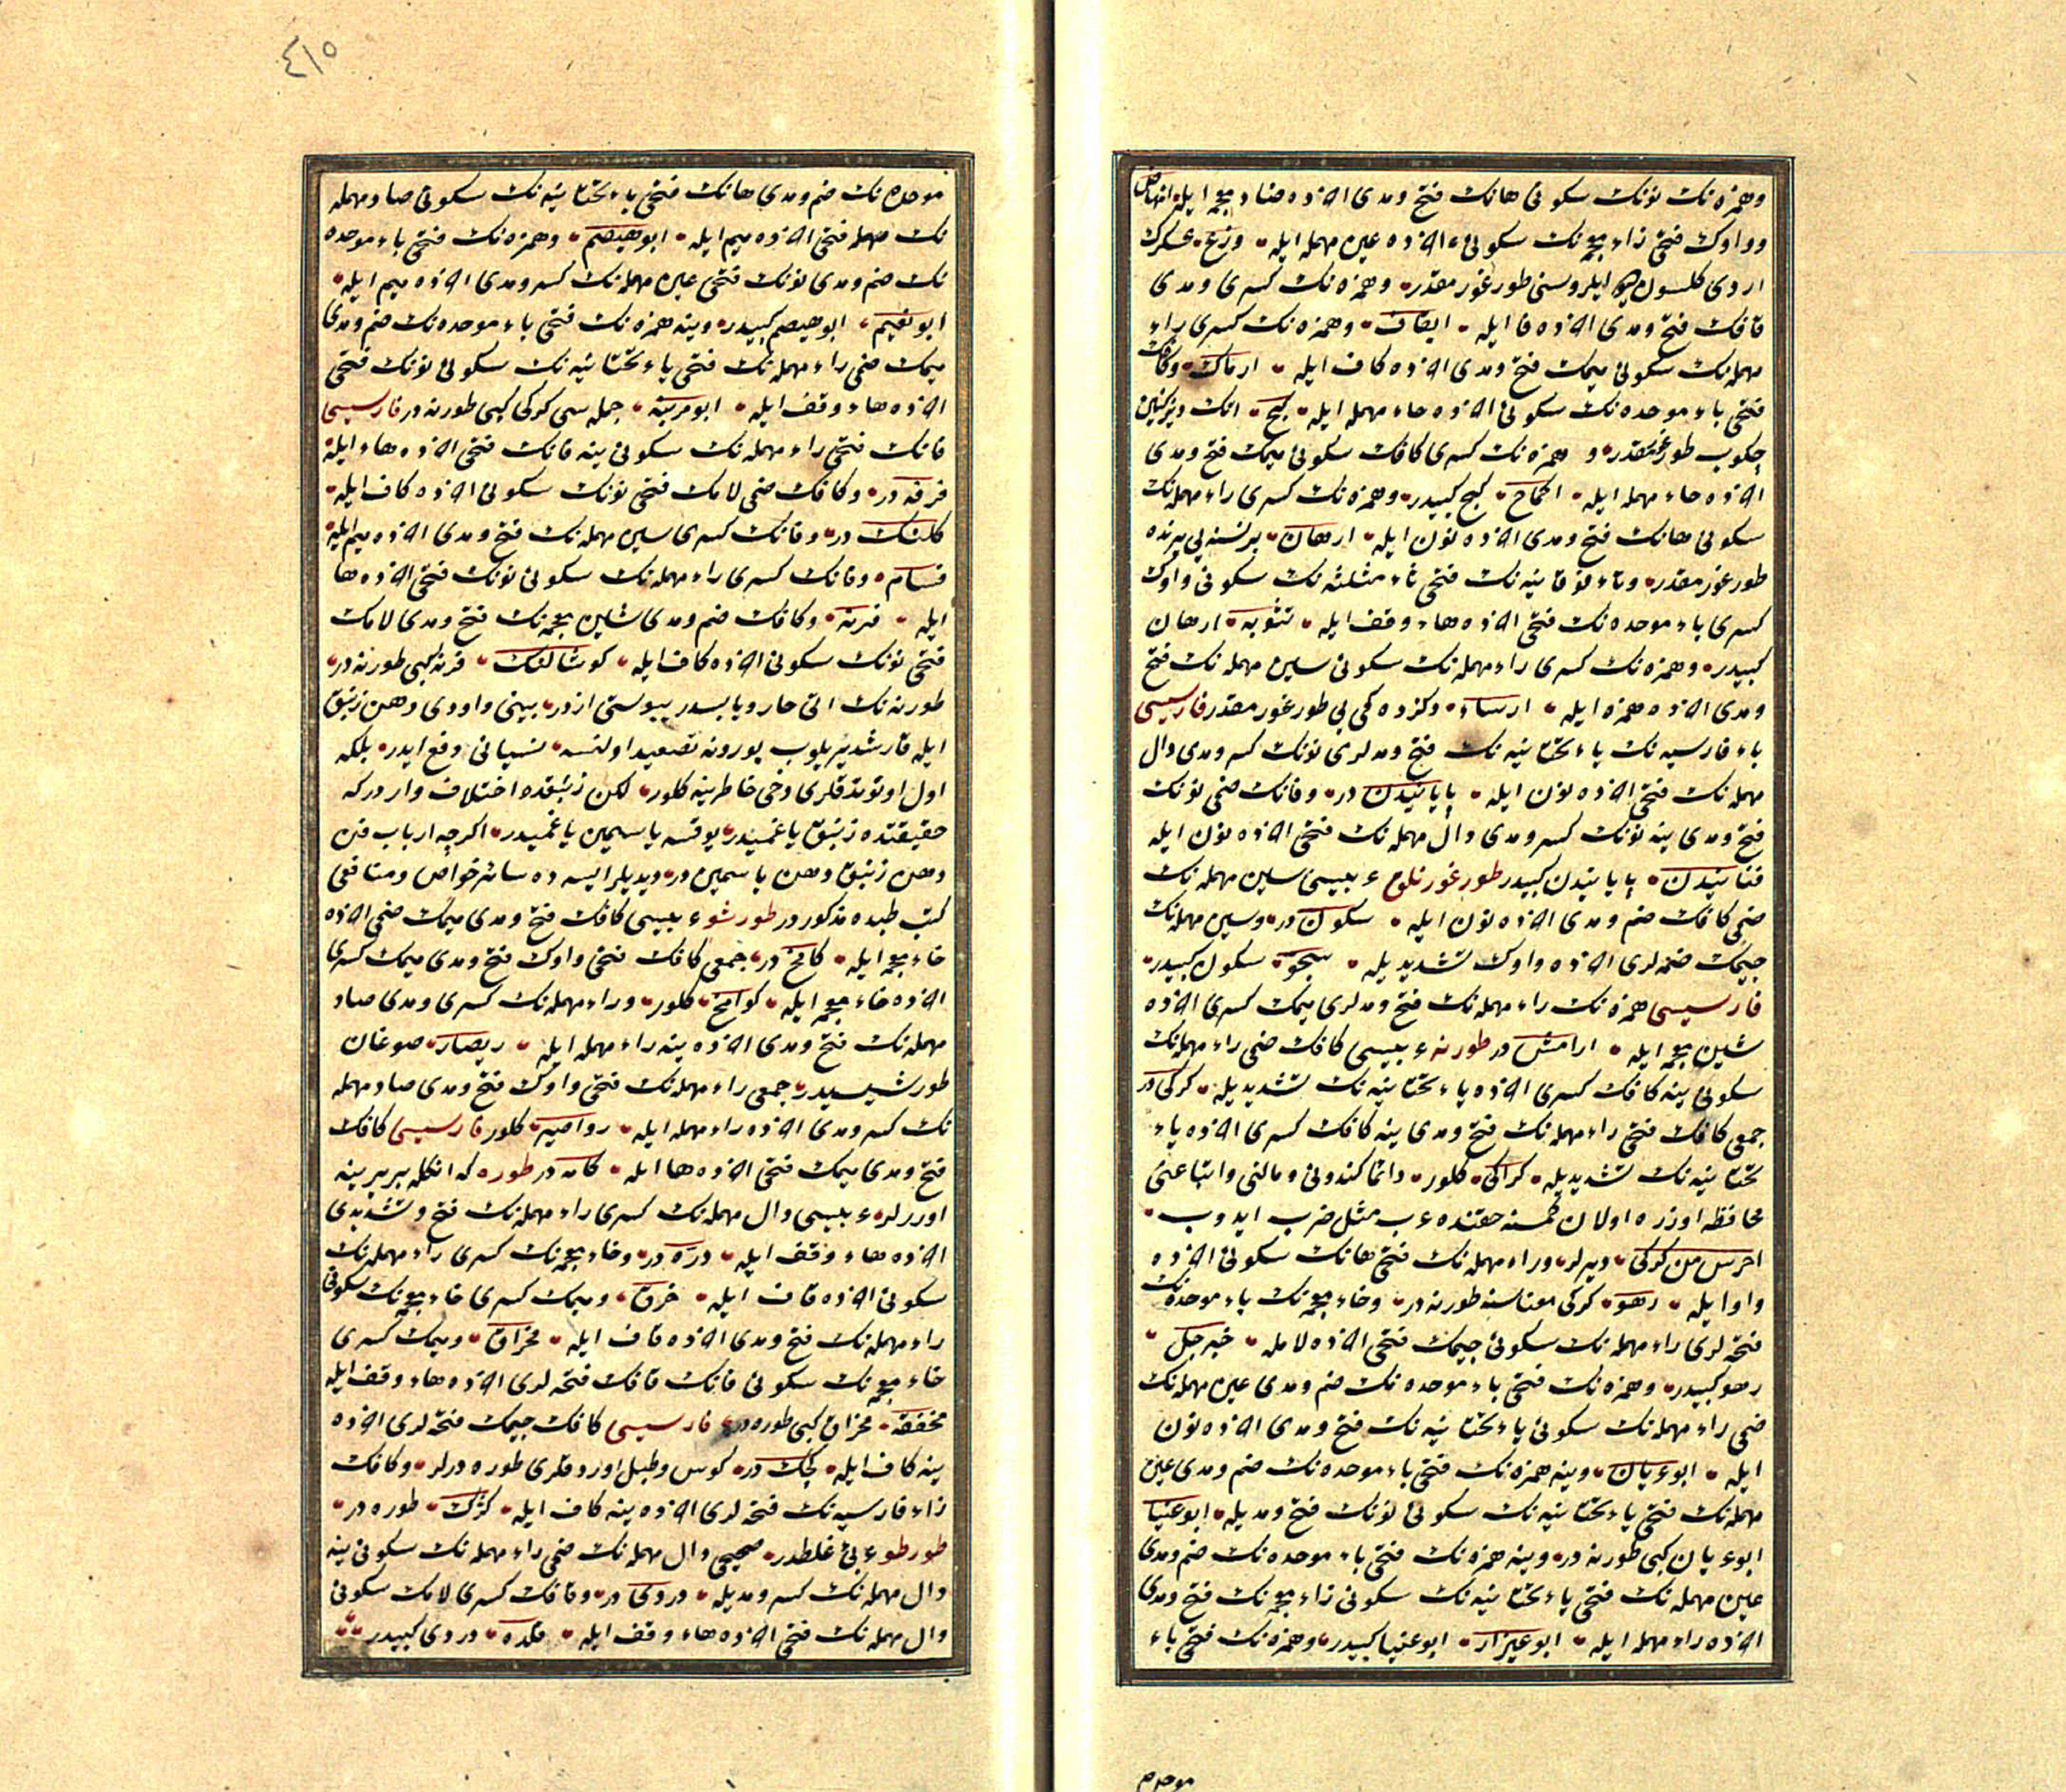 وهمزه‌نك نونك سكونی هانك فتح ومدی اخرده ضاد معجمه ایله انهاض
وواوك فتحی زاء معجمه‌نك سكونی اخرده عین مهمله ایله وزع عسكرك
اردی كلسون ایلروسنی طورغورمقدر وهمزه‌نك كسری ومدی
قافك فتح ومدی اخرده فا ایله ایقاف وهمزه‌نك كسری راء
مهمله‌نك سكونی میمك فتح ومدی اخرده كاف ایله ارماك وكافك
فتحی باء موحده‌نك سكونی اخرده حاء مهمله ایله كبح اتك دیزكنین
چكوب طورغورمقدر و همزه‌نك كسری كافك سكونی میمك فتح ومدی
اخرده حاء مهمله ایله اكماح كبح كبیدر وهمزه‌نك كسری راء مهمله‌نك
سكونی هانك فتح ومدی اخرده نون ایله ارهان برنسنه‌یی یرنده
طورغورمقدر وتاء فوقانیه‌نك فتحی ثاء مثلثه‌نك سكونی واوك
كسری باء موحده‌نك فتحی اخرده هاء وقف ایله تثوبه ارهان
كبیدر وهمزه‌نك كسری راء مهمله‌نك سكونی سین مهمله‌نك فتح
ومدی اخرده همزه ایله ارساء وكزوه كمی‌یی طورغورمقدر فارسیسی
باء فارسیه‌نك یاء تحتانیه‌نك فتح ومدلری نونك كسر ومدی دال
مهمله‌نك فتحی اخرده نون ایله پایانیدن در وفانك ضمی نونك
فتح ومدی ینه نونك كسر ومدی دال مهمله‌نك فتحی اخرده نون ایله
فنانیدن پایانیدن كبیدر طورغورنلوم عربیسی سین مهمله‌نك
ضمی كافك ضم ومدی اخرده نون ایله سكون در وسین مهمله‌نك
جیمك ضمه‌لری اخرده واوك تشدیدیله سجو سكون كبیدر
فارسیسی همزه‌نك راء مهمله‌نك فتح ومدلری میمك كسری اخرده
شین معجمه ایله ارامش در طورنه عربیسی كافك ضمی راء مهمله‌نك
سكونی ینه كافك كسری اخرده یاء تحتانیه‌نك تشدیدیله كركی در
جمعی كافك فتحی راء مهمله‌نك فتح ومدی ینه كافك كسری اخرده یاء
تحتانیه‌نك تشدیدیله كراكی كلور دائما كندونی ومالنی واتباعنی
محافظه اوزره اولان كمسنه حقنده عرب مثل ضرب ایدوب
احرس من كركی دیرلر وراء مهمله‌نك فتحی هانك سكونی اخرده
واو ایله رهو كركی معناسنه طورنه در وخاء معجمه‌نك باء موحده‌نك
فتحه‌لری راء مهمله‌نك سكونی جیمك فتحی اخرده لامله خبرجل
رهو كبیدر وهمزه‌نك فتحی باء موحده‌نك ضم ومدی عین مهمله‌نك
ضمی راء مهمله‌نك سكونی یاء تحتانیه‌نك فتح ومدی اخرده نون
ایله ابو عریان وینه همزه‌نك فتحی باء موحده‌نك ضم ومدی عین
مهمله‌نك فتحی یاء تحتانیه‌نك سكونی نونك فتح ومدیله ابو عینا
ابو عریان كبی طورنه در وینه همزه‌نك فتحی باء موحده‌نك ضم ومدی
عین مهمله‌نك فتحی یاء تحتانیه‌نك سكونی زاء معجمه‌نك فتح ومدی
اخرده راء مهمله ایله ابو عیزار ابو عینا كبیدر وهمزه‌نك فتحی باء
موحده
٤١٥
موحده‌نك ضم ومدی هانك فتحی یاء تحتانیه‌نك سكونی صاد مهمله
نك مهمله فتحی اخرده میم ایله ابو هیصم وهمزه‌نك فتحی باء موحده
نك ضم ومدی نونك فتحی عین مهمله‌نك كسر ومدی اخرده میم ایله
ابو نعیم ابو هیصم كبیدر وینه همزه‌نك فتحی باء موحده‌نك ضم ومدی
میمك ضمی راء مهمله‌نك فتحی یاء تحتانیه‌نك سكونی نونك فتحی
اخرده هاء وقف ایله ابو مرینه جمله‌سی كركی كبی طورنه در فارسیسی
فانك فتحی راء مهمله‌نك سكونی ینه فانك فتحی اخرده هاء ایله
فرفه در وكافك ضمی لامك فتحی نونك سكونی اخرده كاف ایله
كلنك در وفانك كسری سین مهمله‌نك فتح ومدی اخرده میم ایله
فسام وفانك كسری راء مهمله‌نك سكونی نونك فتحی اخرده ها
ایله فرنه وكافك ضم ومدی شین معجمه‌نك فتح ومدی لامك
فتحی نونك سكونی اخرده كاف ایله كوشالنك فرنه كبی طورنه در
طورنه‌نك اتی حار ویابسدر یبوستی ازدر بینی واودی دهن زنبق
ایله قارشدیریلوب بورونه تصعید اولنسه نسیانی دفع ایدر بلكه
اول اونوتدقلری دخی خاطرینه كلور لكن زنبقده اختلاف واردركه
حقیقتده زنبق یاغمیدر یوقسه یاسمین یاغمیدر اكرچه ارباب فن
دهن زنبق دهن یاسمین در دیدیلر ایسه ده سائر خواص ومنافعی
كتب طبده مذكوردر طورشو عربیسی كافك فتح ومدی میمك ضمی اخرده
خاء معجمه ایله كامخ در جمعی كافك فتحی واوك فتح ومدی میمك كسری
اخرده خاء معجمه ایله كوامخ كلور وراء مهمله‌نك كسری ومدی صاد
مهمله‌نك فتح ومدی اخرده ینه راء مهمله ایله ریصار صوغان
طورشیسیدر جمعی راء مهمله‌نك فتحی واوك فتح ومدی صاد مهمله
نك كسر ومدی اخرده راء مهمله ایله رواصیر كلور فارسیسی كافك
فتح ومدی میمك فتحی اخرده ها ایله كامه در طوره كه انكله بربرینه
اوررلر عربیسی دال مهمله‌نك كسری راء مهمله‌نك فتح وتشدیدی
اخرده هاء وقف ایله دره در وخاء معجمه‌نك كسری راء مهمله‌نك
سكونی اخرده قاف ایله خرق ومیمك كسری خاء معجمه‌نك سكونی
راء مهمله‌نك فتح ومدی اخرده قاف ایله مخراق ومیمك كسری
خاء معجمه‌نك سكونی فانك قافك فتحه‌لری اخرده هاء وقف ایله
مخفقه مخراق كبی طوره در فارسیسی كافك جیمك فتحه‌لری اخرده
ینه كاف ایله كجك در كوس وطبل اوردقلری طوره درلر وكافك
زاء فارسیه‌نك فتحه‌لری اخرده ینه كاف ایله كژك طوره در
طورطو عربی غلطدر صحیحی دال مهمله‌نك ضمی راء مهمله‌نك سكونی ینه
دال مهمله‌نك كسر ومدیله دردی در وقافك كسری لامك سكونی
دال مهمله‌نك فتحی اخرده هاء وقف ایله قلده دردی كبیدر